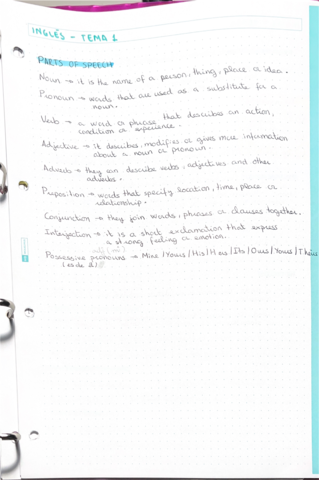 INGLÉS - TEMA 1
PARTS OF SPEECH
Noun → it is the name of a person, thing, place or idea.
Pronoun → words that are used as a substitute for a
noun.
Verb → a word or phrase that describes an action,
condition or experience.
Adjective → it describes, modifies or gives more information
about a noun or pronoun.
Adverbs → they can describe verbs, adjectives and other
adverbs.
Preposition → words that specify location, time, place or
relationship.
Conjunction → they join words, phrases or clauses together.
Interjection → it is a short exclamation that express
a strong feeling or emotion.
Possessive pronouns → Mine /Yours /His /Hers /Its /Ours /Yours /Theirs